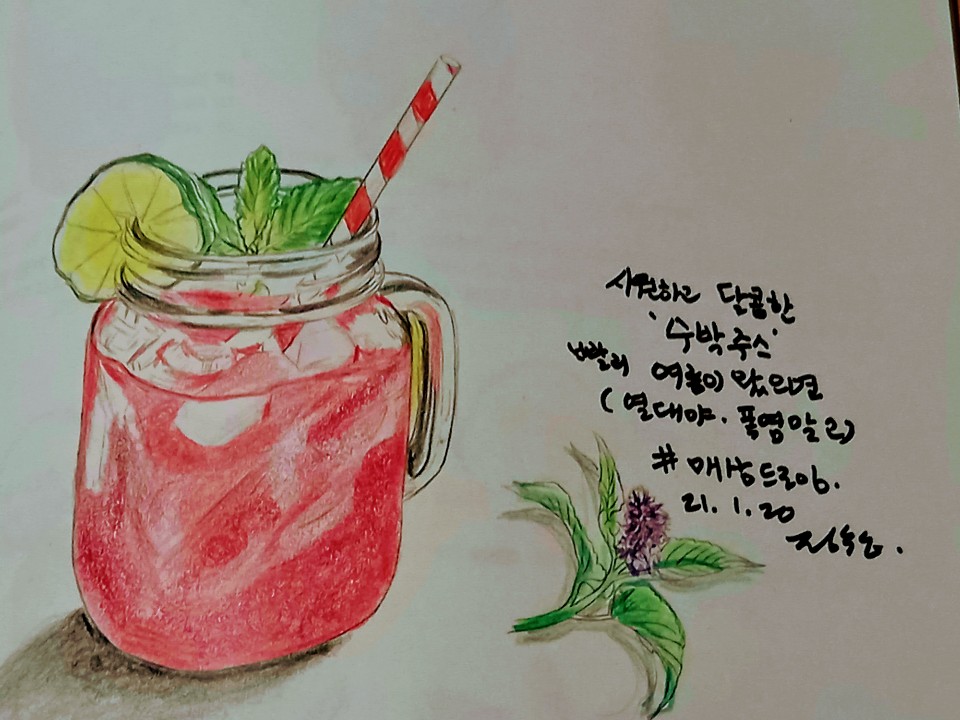 시원하고 달콤한
'수박주스'
빨리 여름이 왔으면
(열대야. 폭염말고)
# 매일드로잉.
21. 1. 20